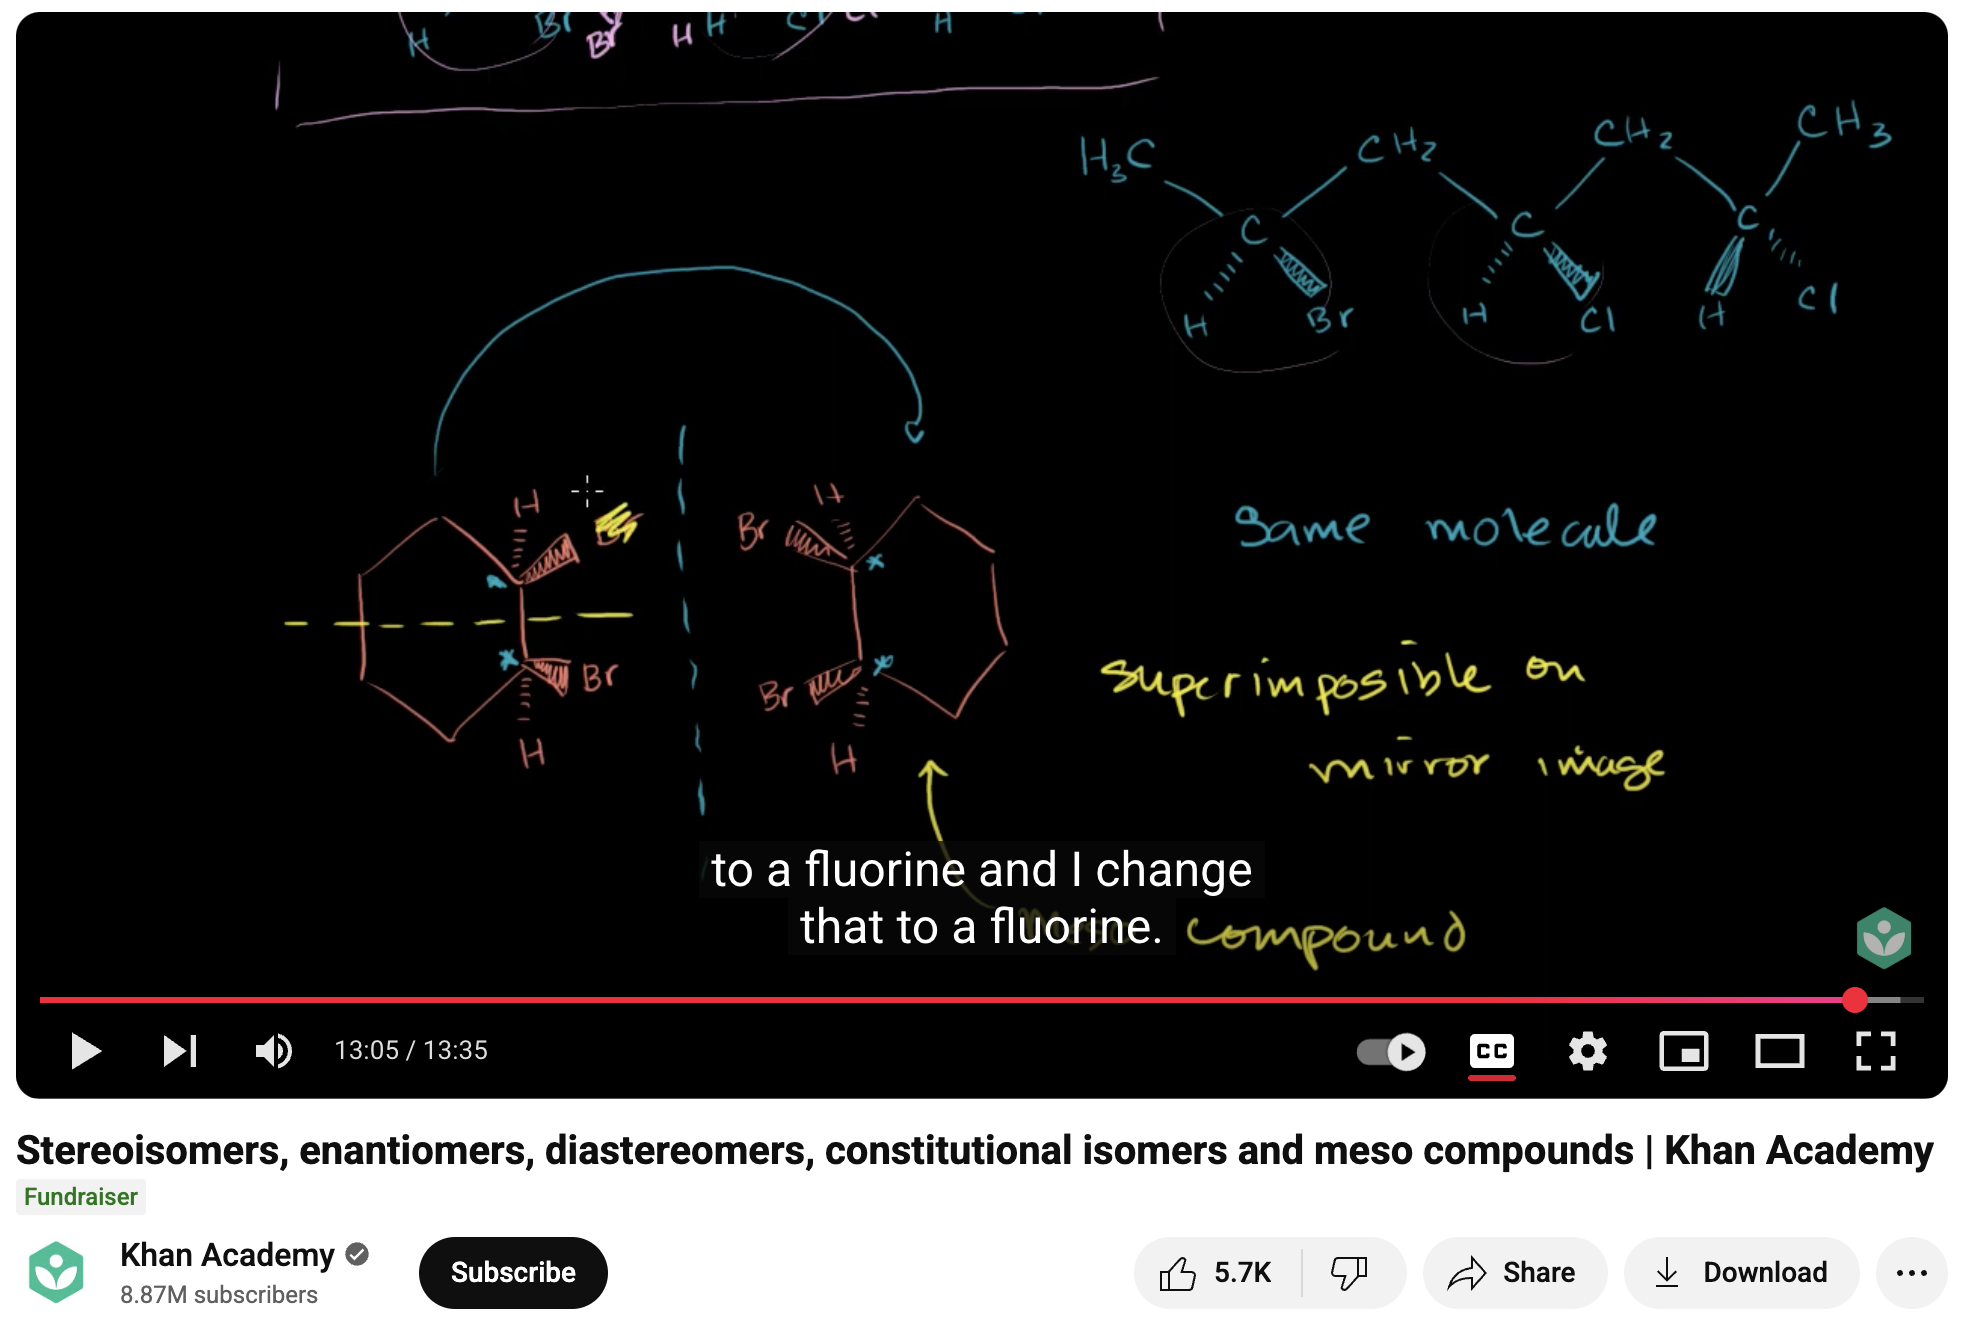 H Br Br H H Cl H
H3C CH2 CH2 CH3
C C C
H Br H Cl H Cl
H H
Br
Same molecule
Br Br
superimposible on
H H
mirror image
to a fluorine and I change
that to a fluorine.
compound
13:05 / 13:35
CC
Stereoisomers, enantiomers, diastereomers, constitutional isomers and meso compounds | Khan Academy
Fundraiser
Khan Academy
8.87M subscribers
Subscribe
5.7K
Share
Download